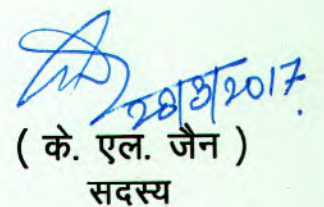 28/3/2017
( के. एल. जैन )
सदस्य